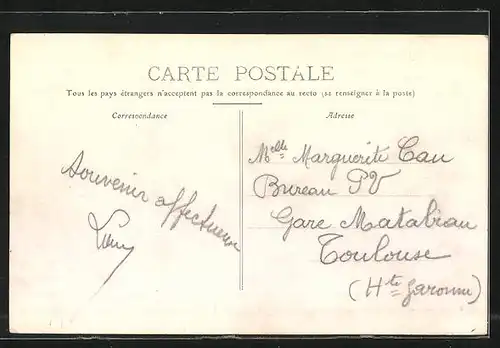 CARTE POSTALE
Tous les pays étrangers n'acceptent pas la correspondance au recto (se renseigner à la poste)
Correspondance
Adresse
Souvenir affectueux
Melle Marguerite Cau
Bureau PV
Gare Matabiau
Toulouse
(Hte Garonne)